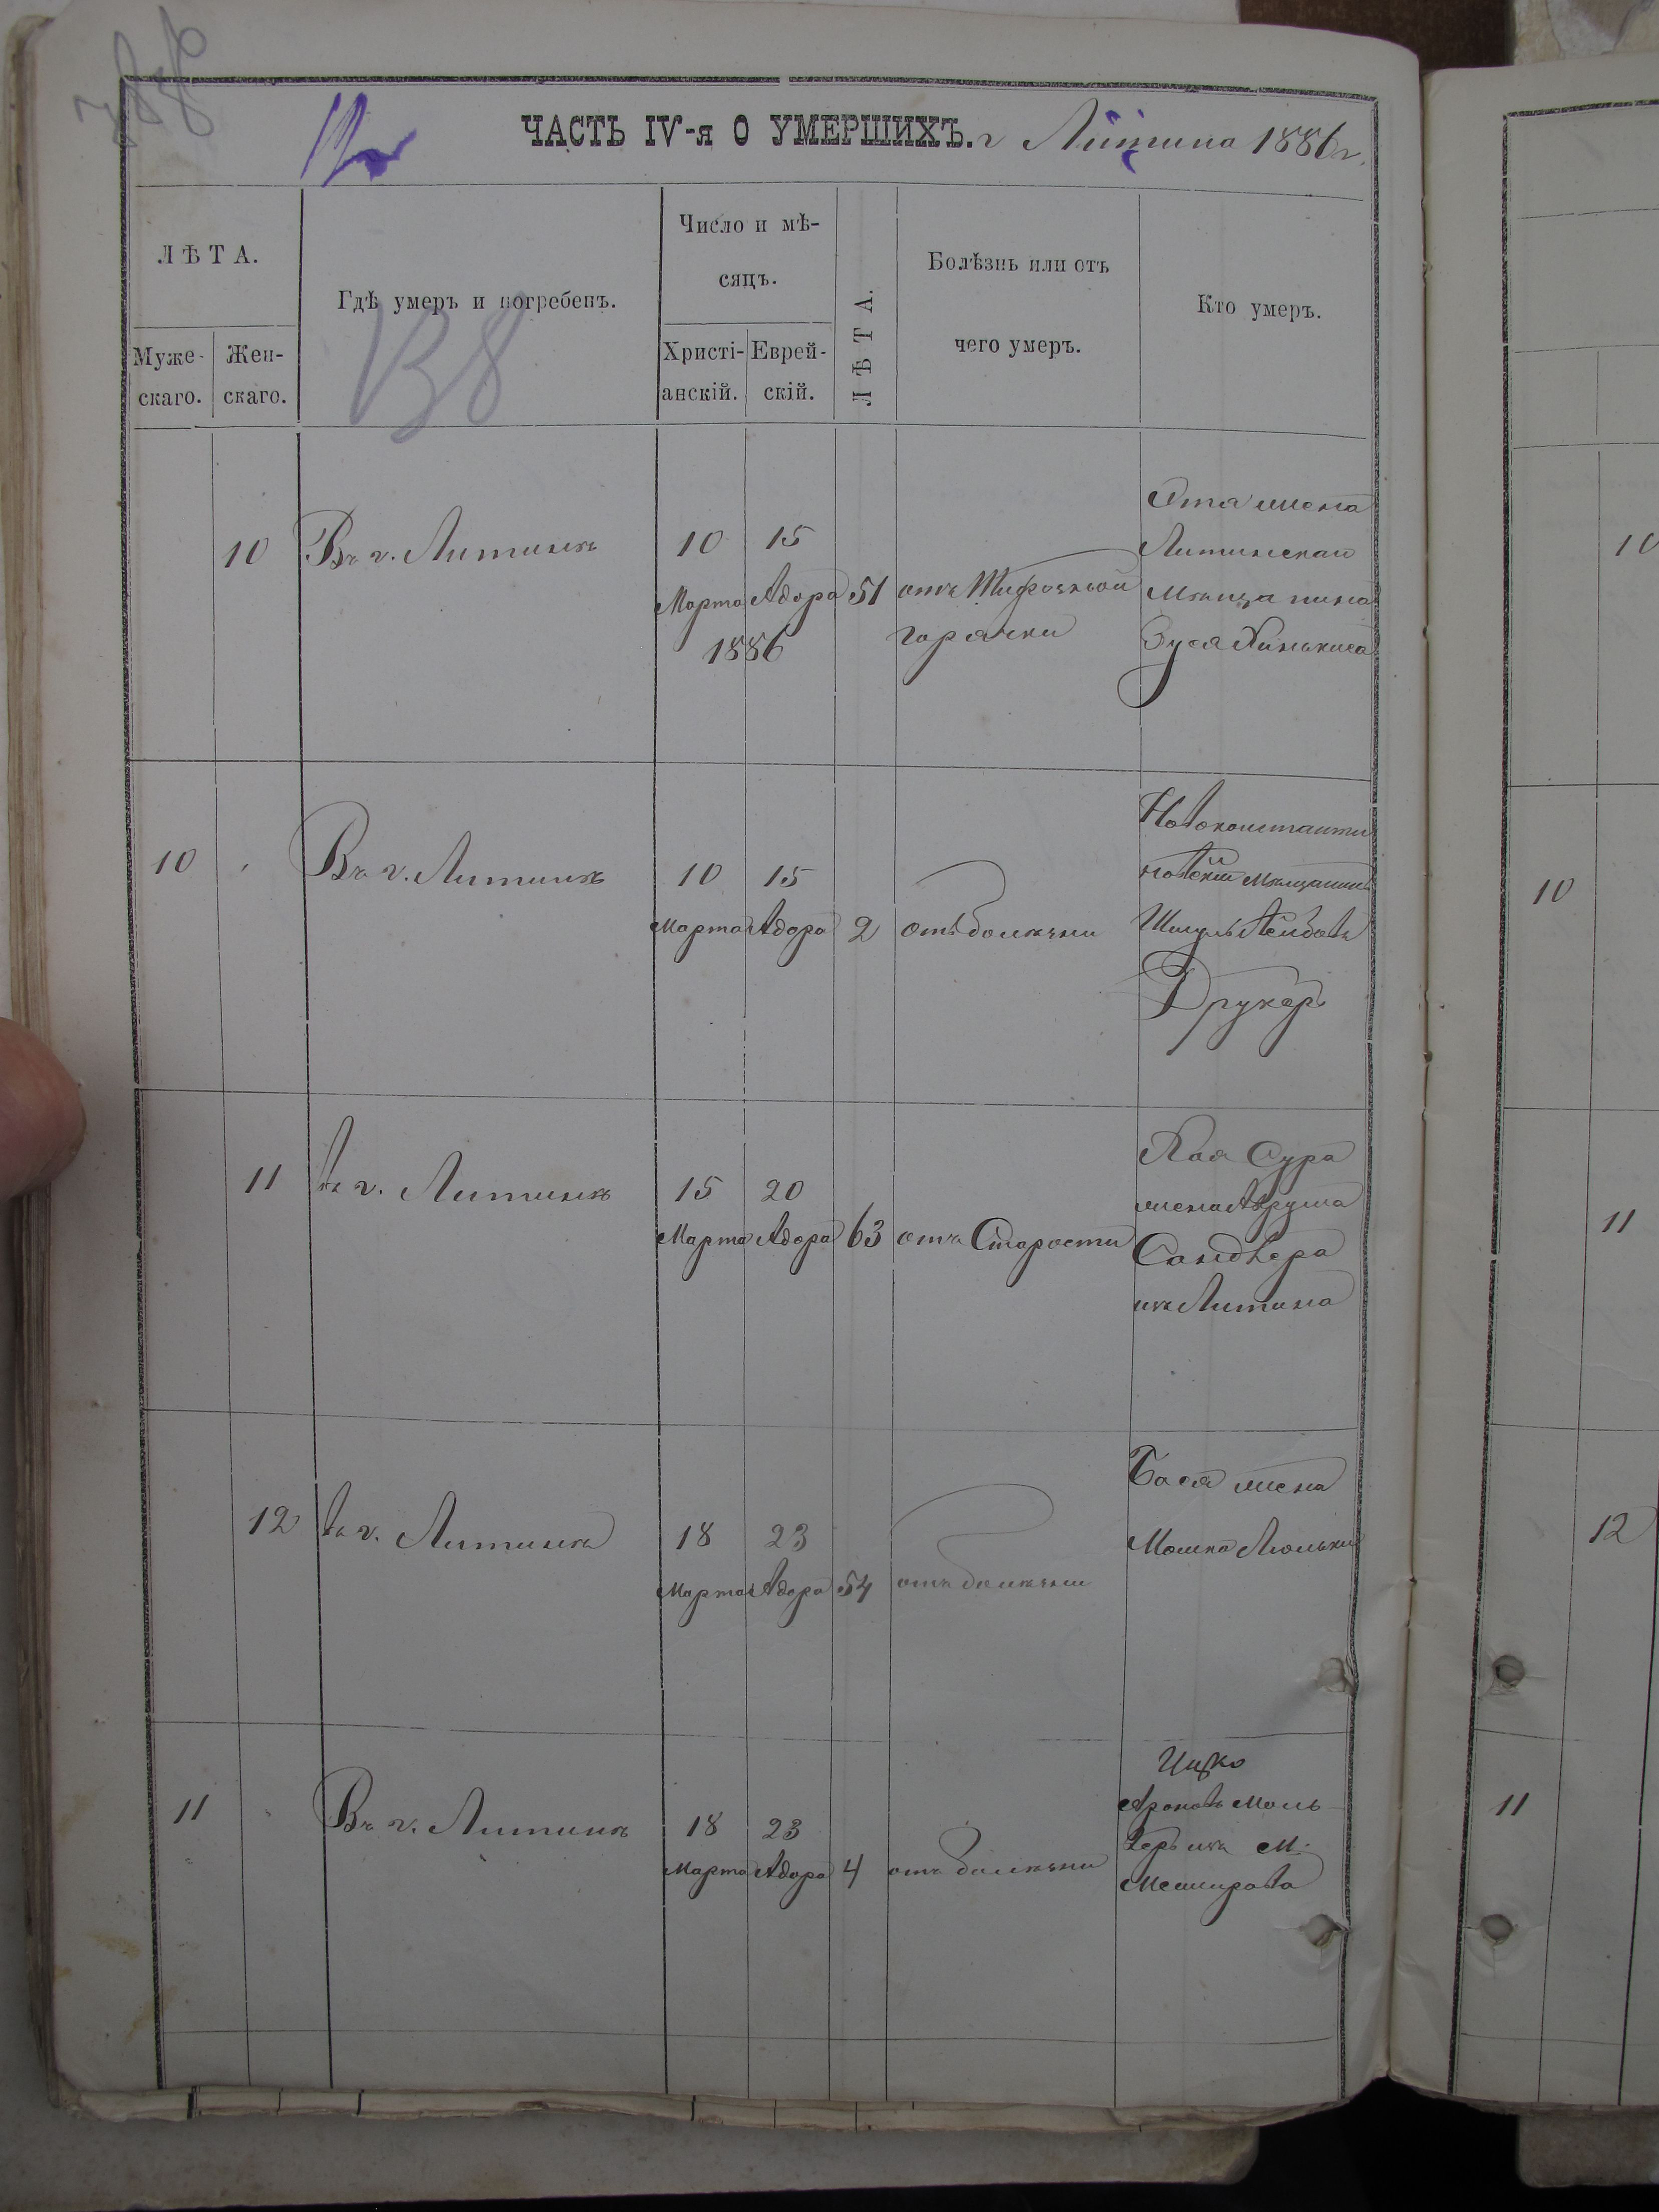 ЧАСТЬ IV-я О УМЕРШИХЪ. г Литина 1886 г.
ЛѢТА.
Муже-
скаго.
Жен-
скаго.
Гдѣ умеръ и погребенъ.
Число и мѣ-
сяцъ.
Христі-
анскій.
Еврей-
скій.
ЛѢТА.
Болѣзнь или отъ
чего умеръ.
Кто умеръ.
138
10 Въ г. Литинѣ
10 15
Марта Адора 51
1886
отъ Тифозной
горячки
жена
Литинскаго
Мѣщанина
Зуся
10 Въ г. Литинѣ
10 15
Марта Адора 2 отъ болѣзни
Новоконстанти
новскій Мѣщанинъ
Шмуль Лейбовъ
Друкеръ
11 въ г. Литинѣ
15 20
Марта Адора 63 отъ Старости
Хая Сура
жена Аврума
Сандлера
изъ Литина
12 въ г. Литинѣ
18 23
Марта Адора 54 отъ болѣзни
Бася жена
Мошка
11 Въ г. Литинѣ
18 23
Марта Адора 4 отъ болѣзни
Ицко
Ароновъ
изъ м.
Межирова
10
10
11
12
11